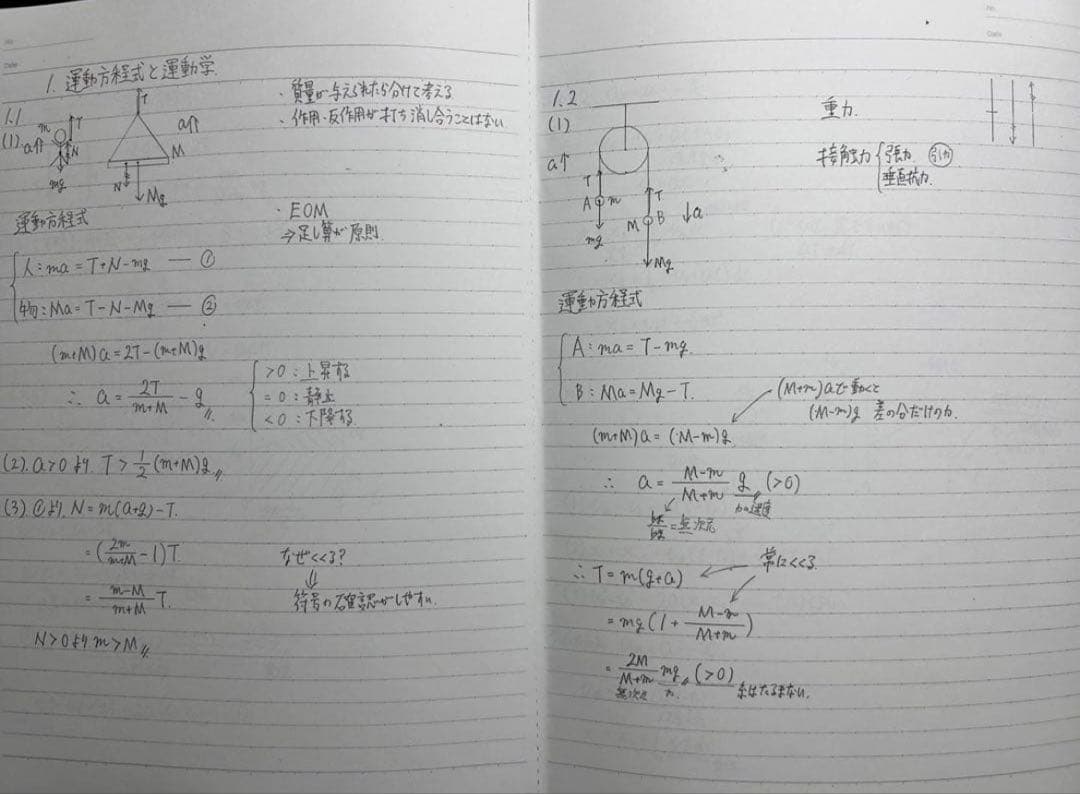 1. 運動方程式と運動学
1.1
(1)
m
T
a↑
N
mg
T
a↑
M
N
Mg
・質量が与えられたら分けて考える
・作用・反作用が打ち消し合うことはない
運動方程式
・EOM
⇒足し算が原則
人：ma = T+N-mg — ①
物：Ma = T-N-Mg — ②
(m+M)a = 2T-(m+M)g
∴ a = 2T/(m+M) - g
>0：上昇する
=0：静止
<0：下降する
(2). a>0より T > 1/2 (m+M)g
(3). ①より N = m(a+g)-T.
= (2m/(m+M) - 1)T
= (m-M)/(m+M) T.
なぜくくる？
⇓
符号の確認がしやすい
N>0より m>M
No.
Date
1.2
(1)
a↑
T
A
m
mg
T
M
B
↓a
Mg
重力
接触力
張力
引力
垂直抗力
運動方程式
A：ma = T-mg.
B：Ma = Mg-T.
(M+m)aで動くと
(M-m)g 差の分だけの力.
(m+M)a = (M-m)g
∴ a = (M-m)/(M+m) g (>0)
加速度
kg/kg = 無次元
∴ T = m(g+a)
常にくくる
= mg(1 + (M-m)/(M+m))
= 2M/(M+m) mg (>0)
無次元
力
糸はたるまない.